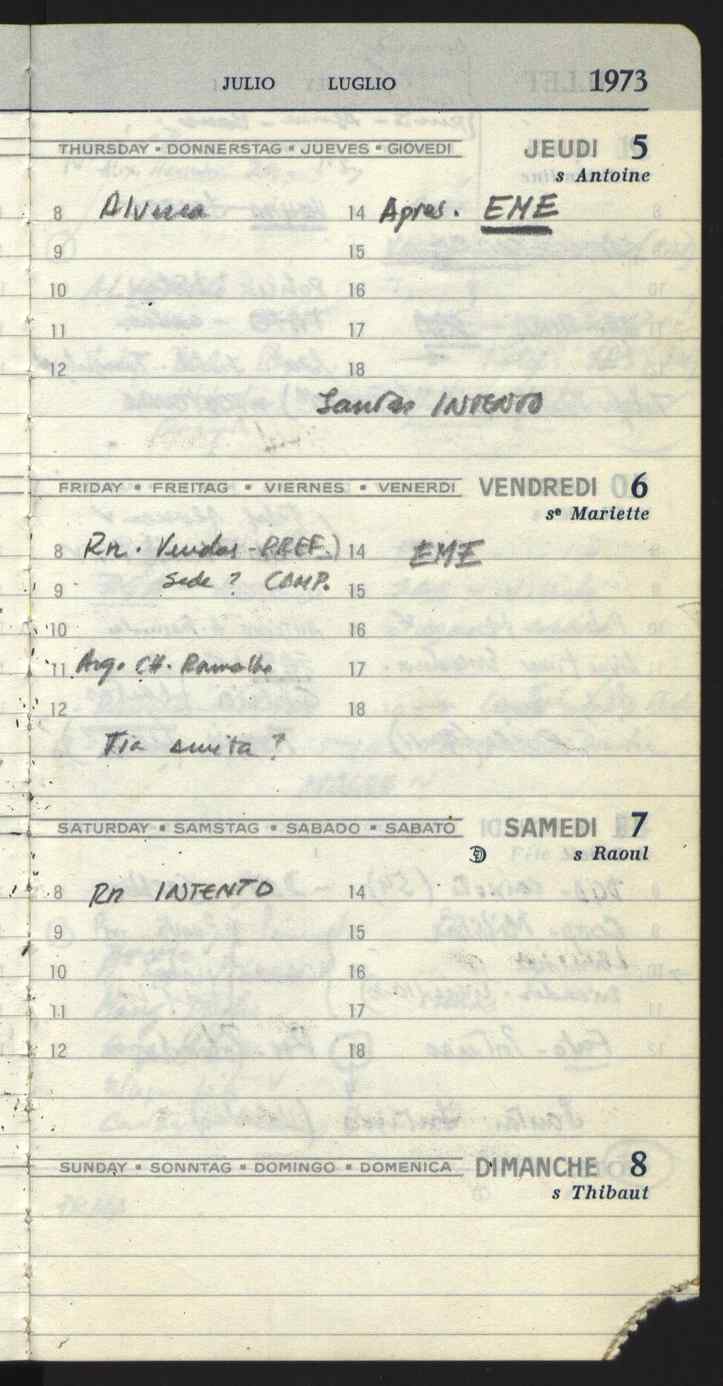 JULIO LUGLIO 1973
THURSDAY • DONNERSTAG • JUEVES • GIOVEDI JEUDI 5
s Antoine
8 14 Apres. EME
9 15
10 16
11 17
12 18
Jantar INTENTO
FRIDAY • FREITAG • VIERNES • VENERDI VENDREDI 6
sᵉ Mariette
8 Rn. Vendas - PREF.) 14 EME
Sede ? COMP.
9 15
10 16
11 Arq. CH. Ramalho 17
12 18
Tia anita ?
SATURDAY • SAMSTAG • SABADO • SABATO SAMEDI 7
s Raoul
8 Rn INTENTO 14
9 15
10 16
11 17
12 18
SUNDAY • SONNTAG • DOMINGO • DOMENICA DIMANCHE 8
s Thibaut